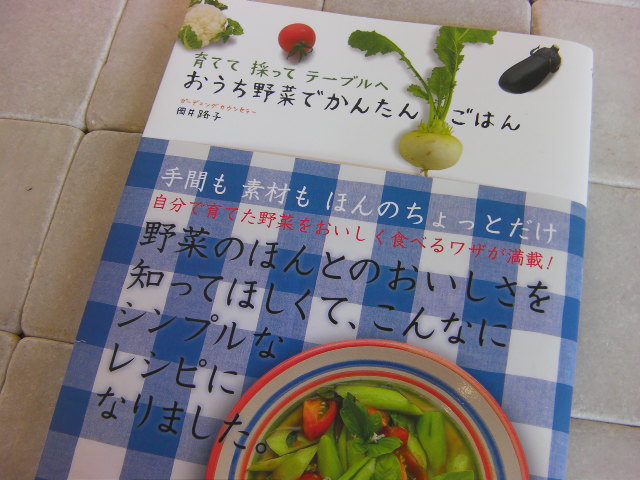 育てて 採って テーブルへ
おうち野菜でかんたん ごはん
ガーデニングカウンセラー
岡井路子
手間も 素材も ほんのちょっとだけ
自分で育てた野菜をおいしく食べるワザが満載!
野菜のほんとのおいしさを
知ってほしくて、こんなに
シンプルな
レシピに
なりました。